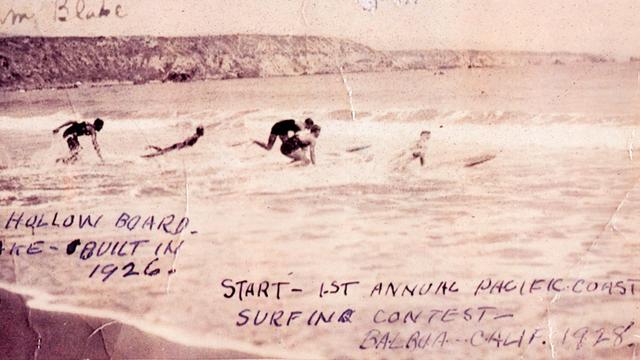 m Blake
HOLLOW BOARD.
AKE - BUILT IN
1926.
START - 1ST ANNUAL PACIFIC COAST
SURFING CONTEST -
BALBOA - CALIF. 1928.